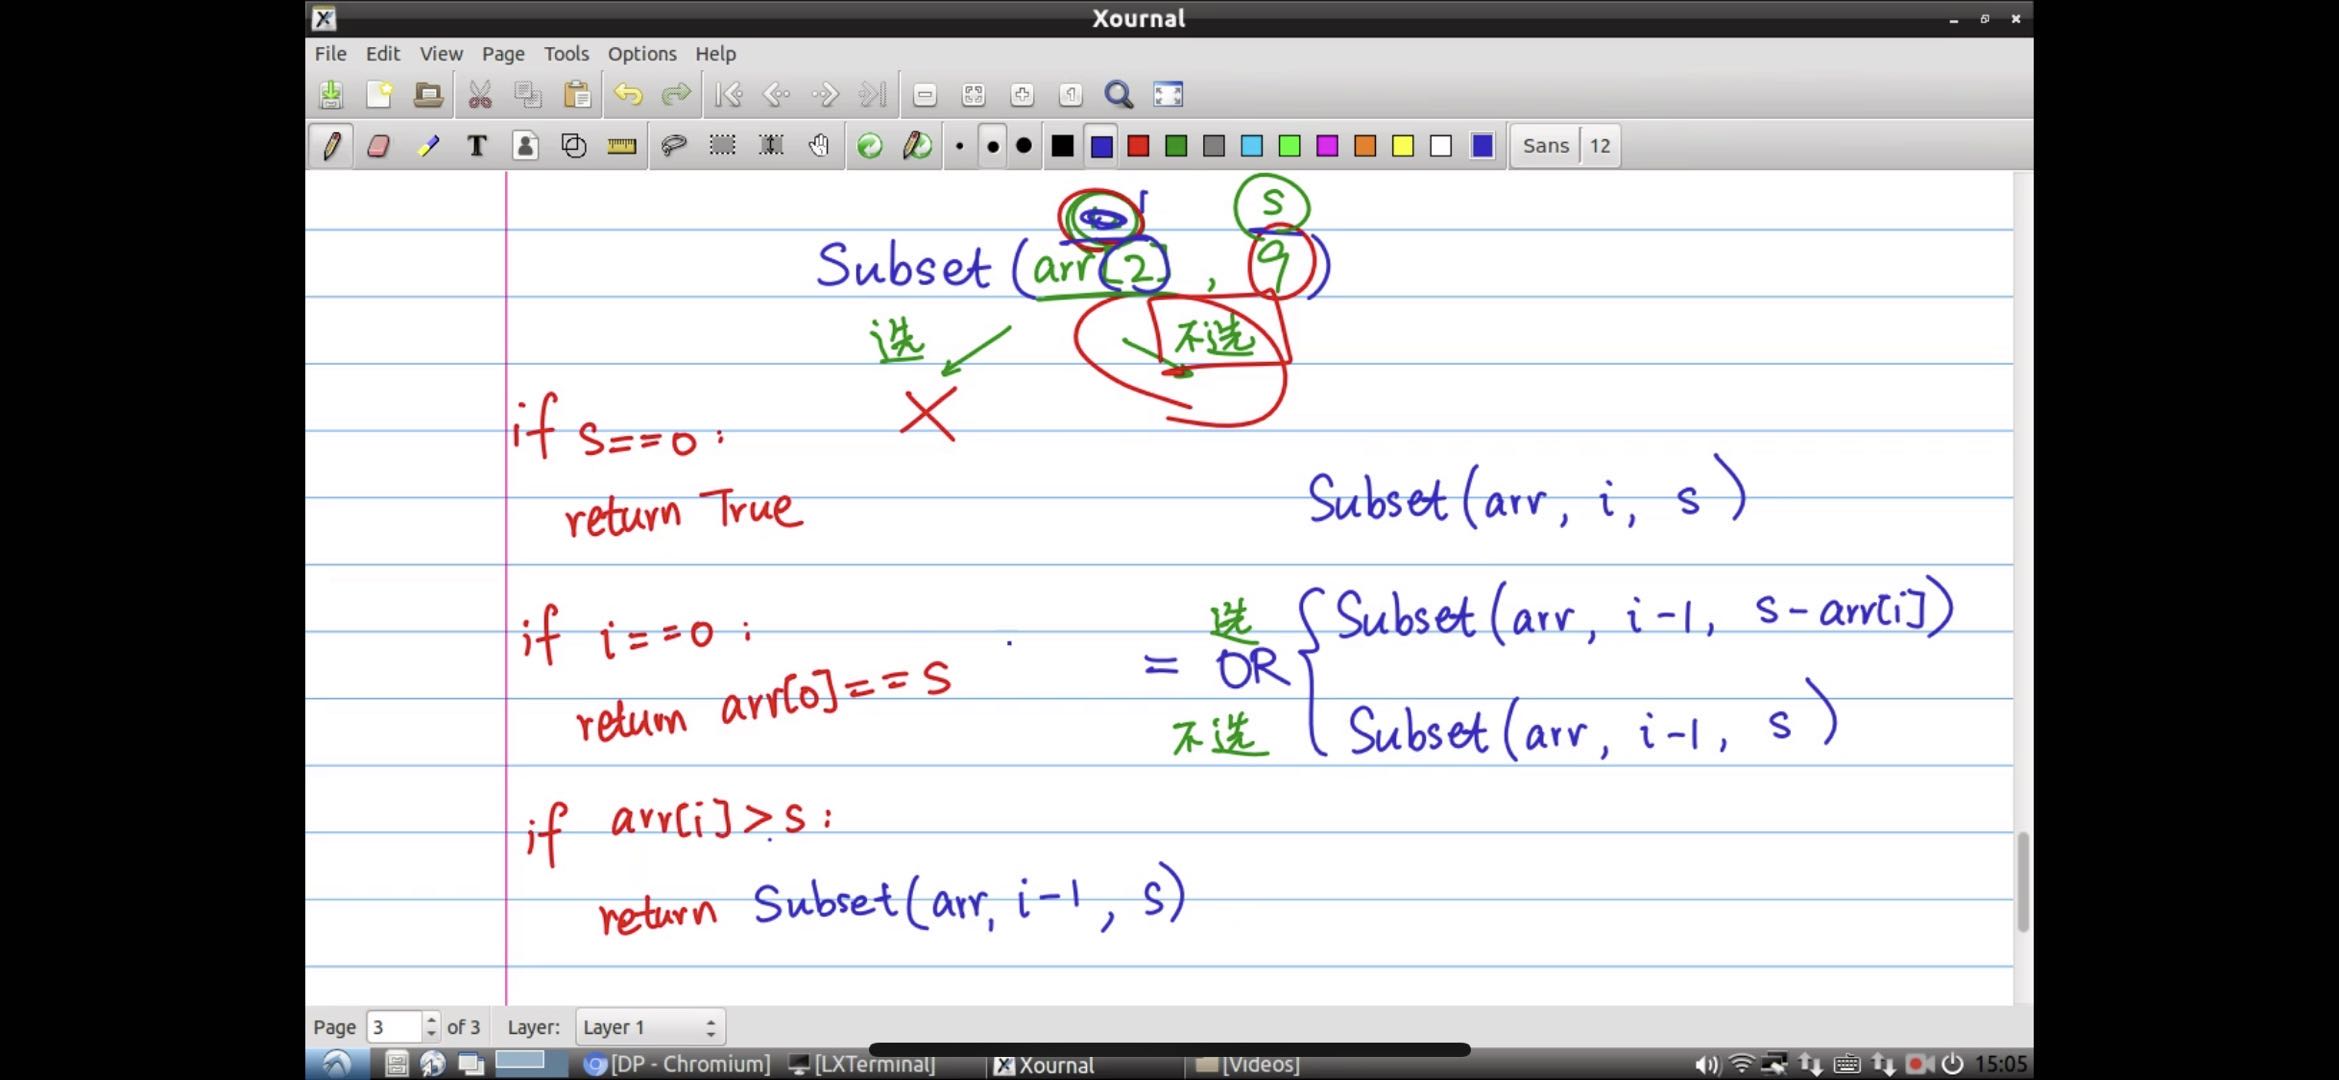 Xournal
File Edit View Page Tools Options Help
Sans 12
s
Subset (arr[2], 9)
选 不选
if s==0:
return True
Subset(arr, i, s)
if i==0:
return arr[0]==s
选 Subset(arr, i-1, s-arr[i])
= OR
不选 Subset(arr, i-1, s)
if arr[i]>s:
return Subset(arr, i-1, s)
Page 3 of 3 Layer: Layer 1
[DP - Chromium] [LXTerminal] Xournal [Videos] 15:05